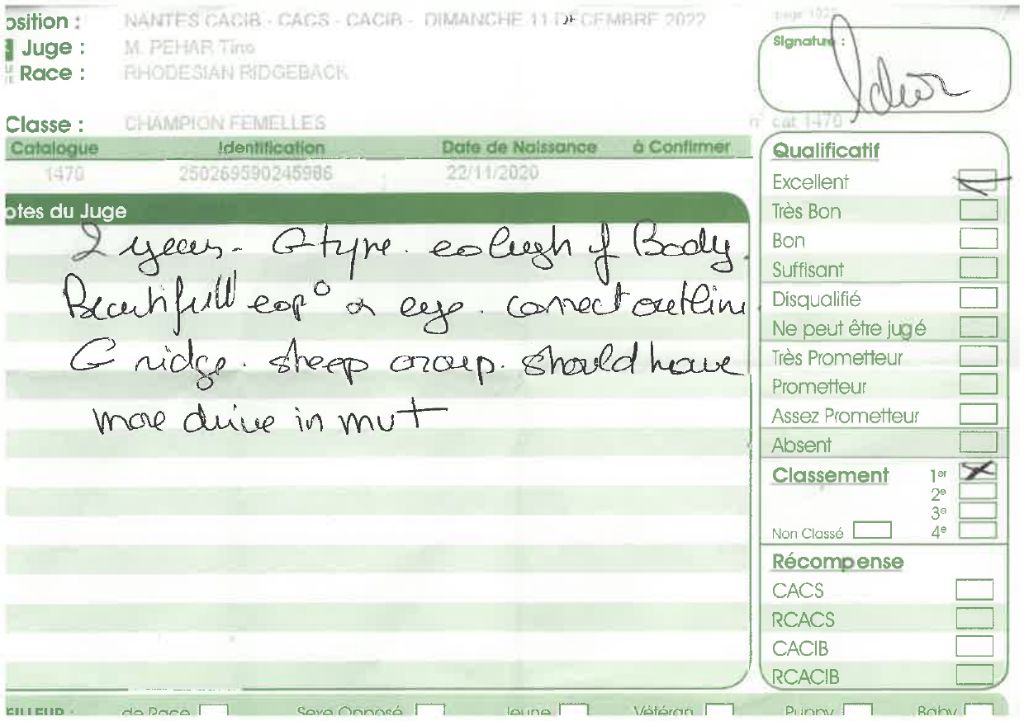 osition : NANTES CACIB - CACS - CACIB - DIMANCHE 11 DECEMBRE 2022
Juge : M. PEHAR Tino
Race : RHODESIAN RIDGEBACK
Signature :
Classe : CHAMPION FEMELLES
n° cat 1470
Catalogue Identification Date de Naissance à Confirmer
1470 250269590245986 22/11/2020
otes du Juge
2 years - G type. of Body.
Beautifull exp° eye. correct outline
G ridge. steep croup. should have
more drive in mvt
Qualificatif
Excellent
Très Bon
Bon
Suffisant
Disqualifié
Ne peut être jugé
Très Prometteur
Prometteur
Assez Prometteur
Absent
Classement 1er
2e
3e
Non Classé 4e
Récompense
CACS
RCACS
CACIB
RCACIB
EILLEUR : de Race Sexe Opposé Jeune Vétéran Puppy Baby